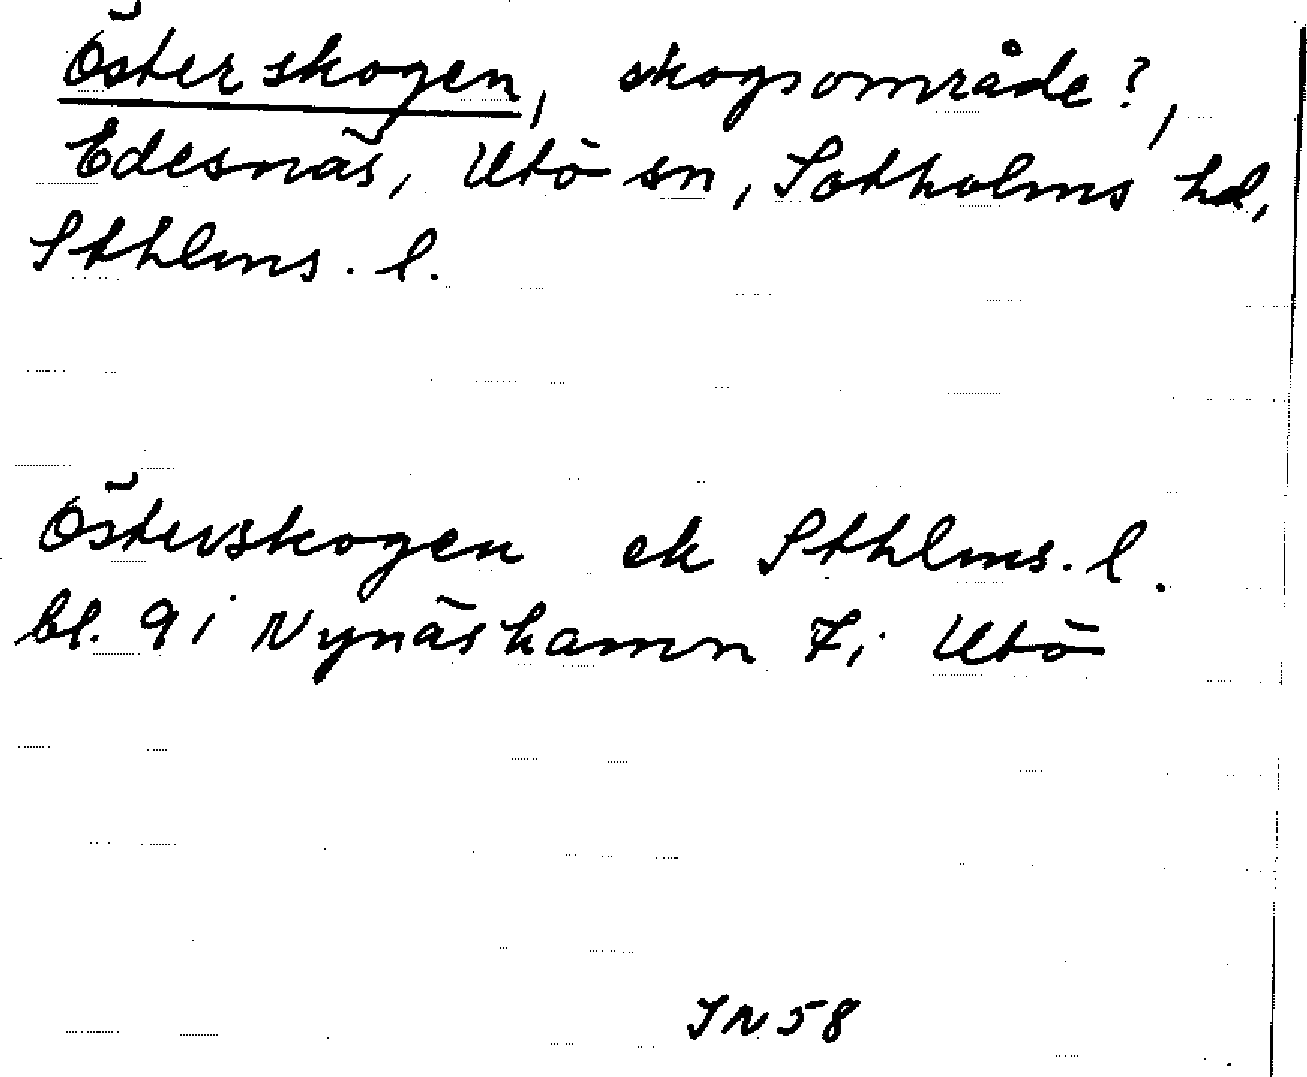 Österskogen, skogsområde?,
Edesnäs, Utö sn, Sotholms hd,
Sthlms. l.
Österskogen ek Sthlms. l.
bl. 9 i Nynäshamn 7; Utö
IN 58